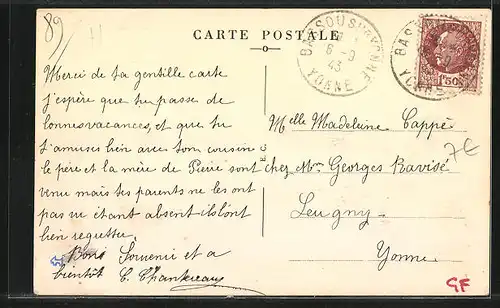 89
H
CARTE POSTALE
BASSOU SUR YONNE
6-9
43
YONNE
BAS
YONNE
1F50
Merci de ta gentille carte
j'espère que tu passe de
bonnes vacances, et que tu
t'amuses bien avec ton cousin
le père et la mère de Pierre sont
venu mais tes parents ne les ont
pas vu étant absent ils l'ont
bien regretter.
Bons Souvenir et a
bientôt C.
E.C.
Melle Madeleine Cappé
chez Mr Georges Ravisé
Leugny
Yonne
7€
GF